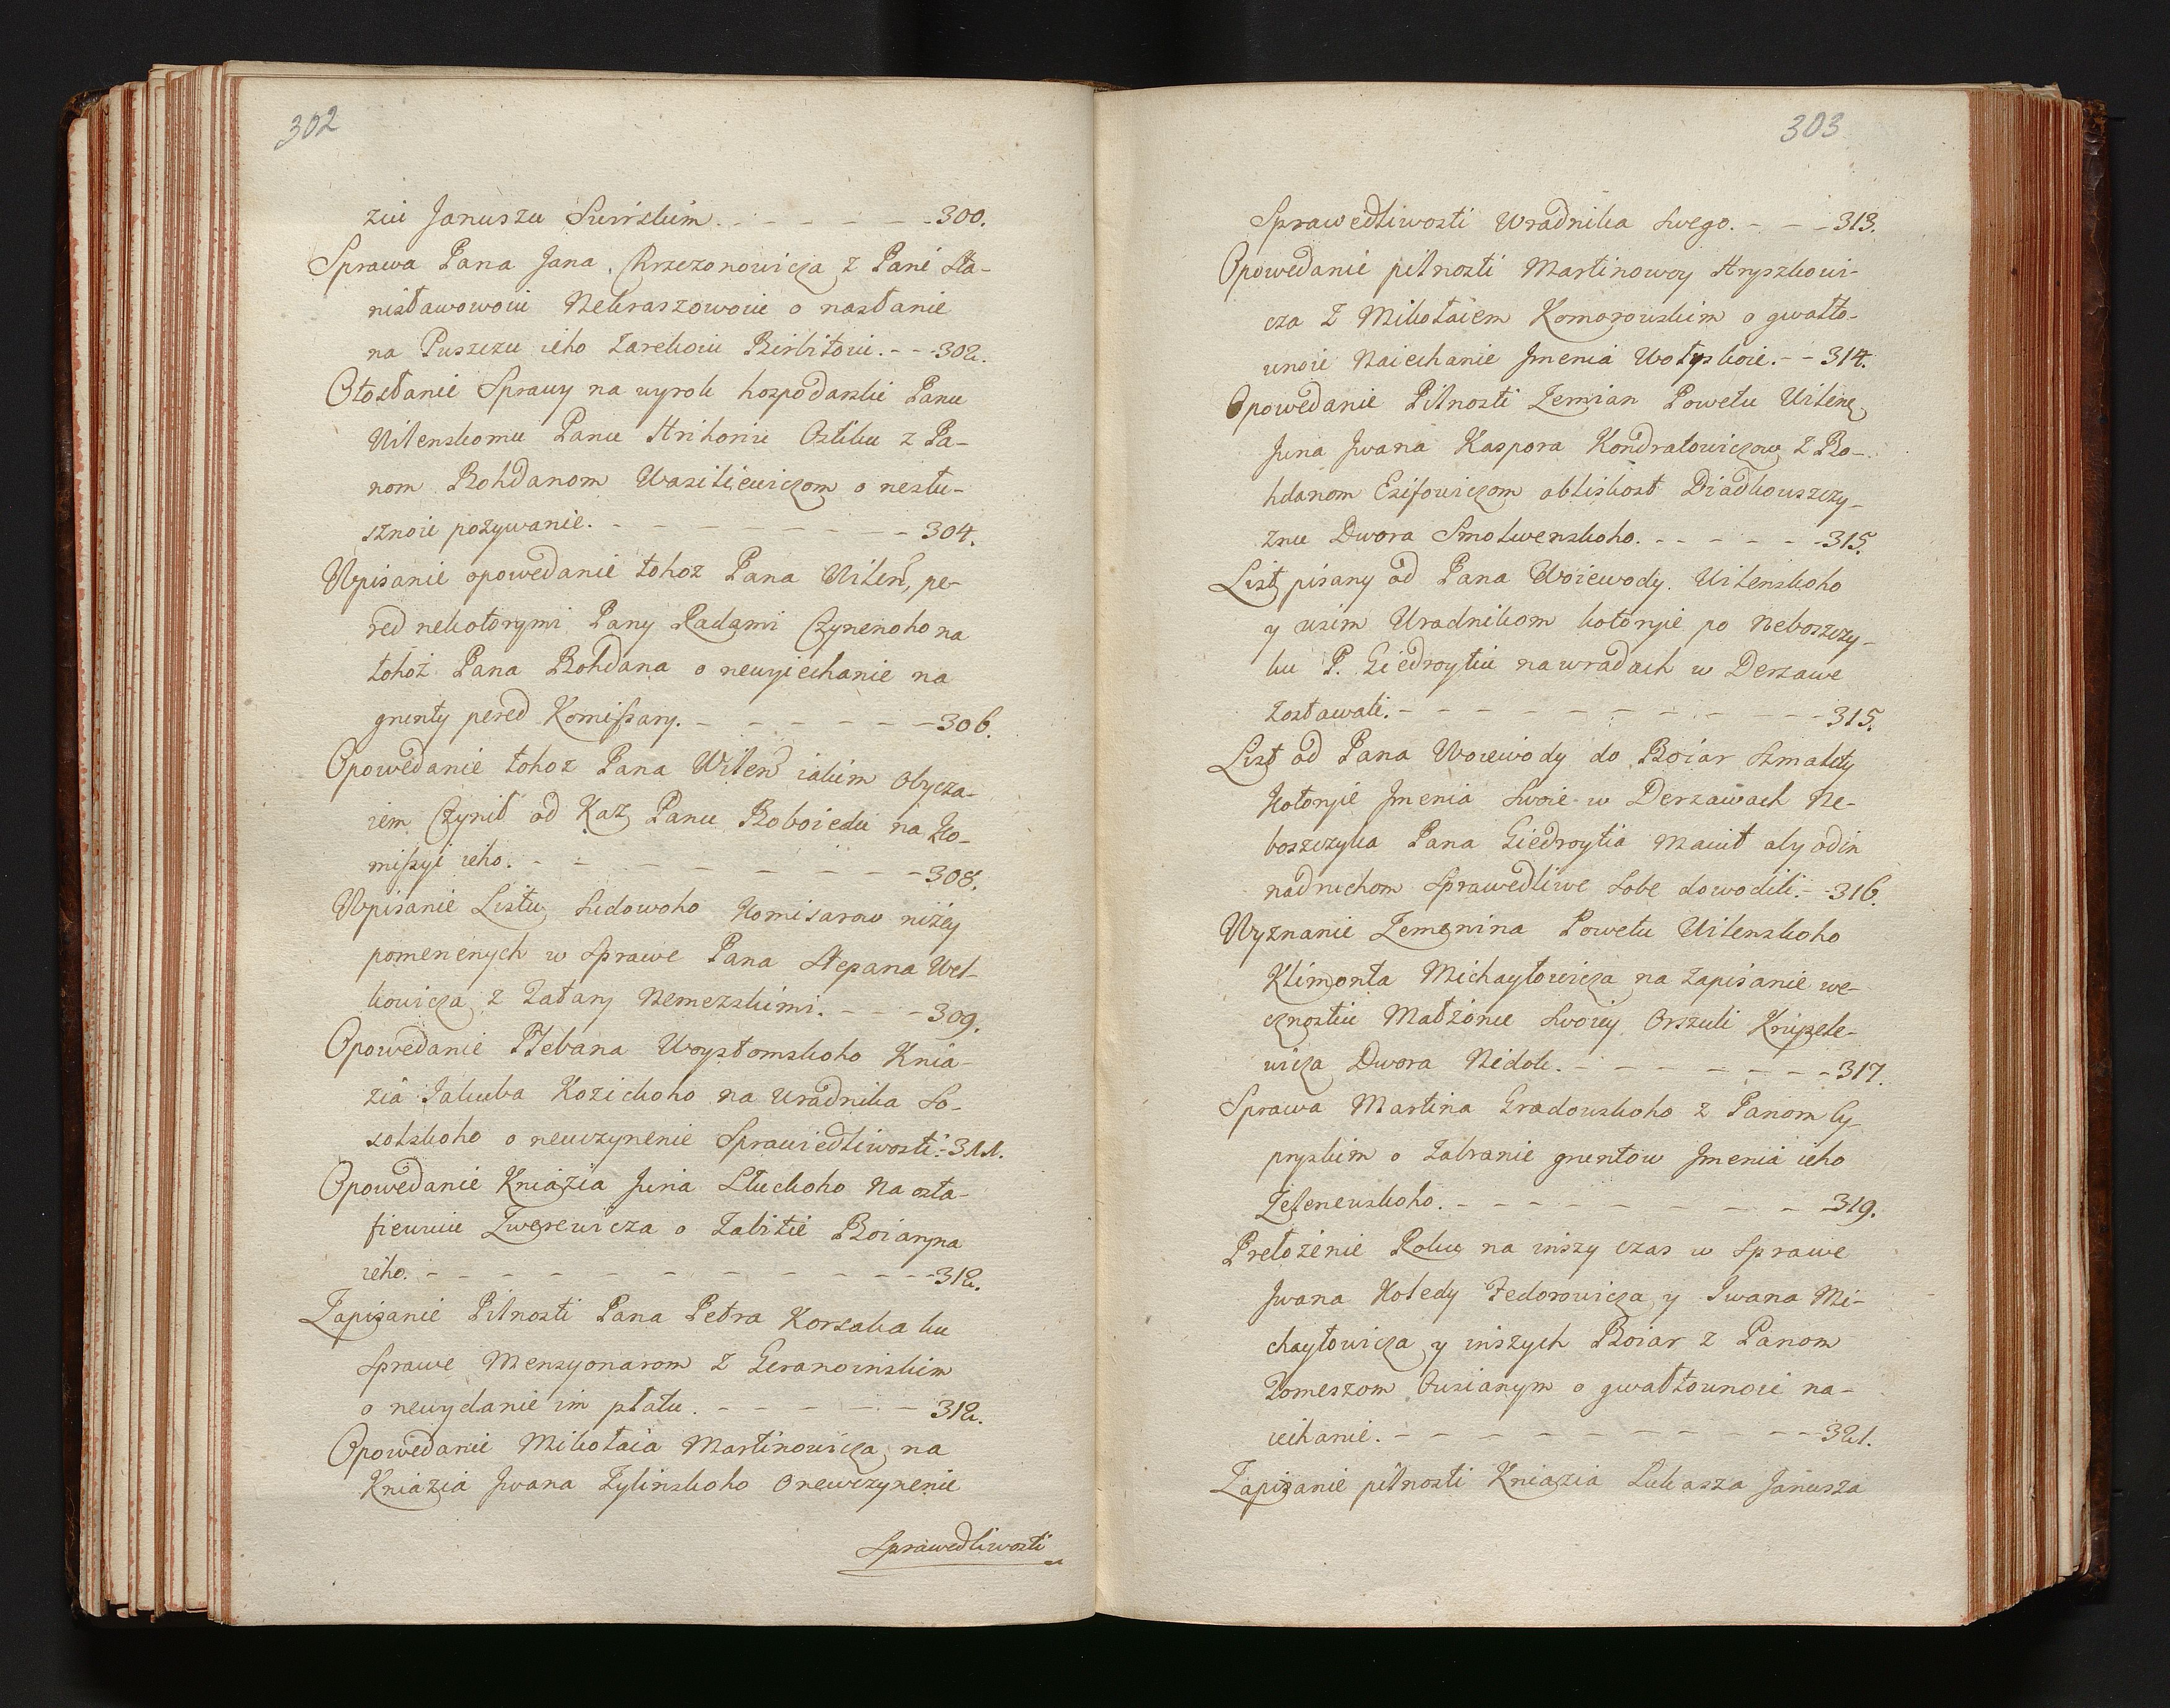 302
ziu Januszu Swirskim. - - - - - - 300.
Sprawa Pana Jana Chrzczonowicza z Pani Sta-
nisławowoiu Nekraszowoiu o nasłanie
na Puszczu ieho Zarekoiu Birbitoiu. - - 302.
Otosłanie Sprawy na wyrok hospodarskie Panu
Wilenskomu Panu Hrihoriu Ostiku z Pa-
nom Bohdanom Wasiliewiczom o neslu-
sznoie pozywanie. - - - - - - - 304.
Wpisanie opowedanie tohoz Pana Wilen, pe-
red nekotorymi Pany Radami Czynenoho na
tohoż Pana Bohdana o newyiechanie na
grunty pered Komissary. - - - - - - 306.
Opowedanie tohoz Pana Wilen iakim obycza-
iem Czynił od Kaz Panu Boboiedu na Ko-
missyi ieho. - - - - - - - 308.
Wpisanie Listu Sudowoho Komisarow niżey
pomenenych w Sprawe Pana Stepana Wel-
kowicza z Tatary Nemezskimi. - - - 309.
Opowedanie Plebana Woystomskoho Knia-
zia Jakuba Kozickoho na Uradnika So-
kolskoho o neuczynenie Sprawiedliwosti. - 311.
Opowedanie Kniazia Juria Słuckoho na osta-
fieuiu Zwerewicza o Zabitie Boiaryna
ieho. - - - - - - - - - - 312.
Zapisanie Pilnosti Pana Petra Korsaka ku
Sprawe Mensyonarom z Geranoinskim
o newydanie im płatu. - - - - - 312.
Opowedanie Mikołaia Martinowicza na
Kniazia Jwana Żylinskoho o neuczynenie
Sprawedliwosti
303
Sprawedliwosti Wradnika Swego. - - - 313.
Opowedanie pilnosti Martinowoy Hryszkowi-
cza Z Mikołaiem Komorowskim o gwałto-
wnoie Naiechanie Jmenia Wołyskoie. - - 314.
Opowedanie Pilnosti Zemian Powetu Wilen
Juria Jwana Kaspora Kondratowiczow Z Bo-
hdanom Esifowiczom obliskost Diadkouszczy-
znu Dwora Smolwenskoho. - - - - - 315.
List pisany od Pana Woiewody Wilenskoho
y wsim Uradnikom kotoryie po Neboszczy-
ku P. Giedroytiu na wradach w Derzawe
Zostawali. - - - - - - - - - 315.
List od Pana Woiewody do Boiar Szmakty
Kotoryie Jmenia Swoie w Derzawach Ne-
boszczyka Pana Giedroytia Maiut aby odin
nadruchom Sprawedliwe Sobe dowodili. - - 316.
Wyznanie Zemenina Powetu Wilenskoho
Klimonta Michayłowicza na zapisanie we-
cznostiu Małżonce Swoiey Orszuli Knipele-
wicza Dwora Nidok. - - - - - - - 317.
Sprawa Martina Gradowskoho z Panom Cy-
pryskim o Zabranie gruntow Jmenia ieho
Zelenewskoho. - - - - - - - - 319.
Prełożenie Roku na inszy czas w Sprawe
Jwana Koledy Fedorowicza y Jwana Mi-
chayłowicza y inszych Boiar z Panom
Tomeszom Ousianym o gwałtownoie na-
iechanie. - - - - - - - - - 321.
Zapisanie pilnosti Kniazia Lukasza Janusza